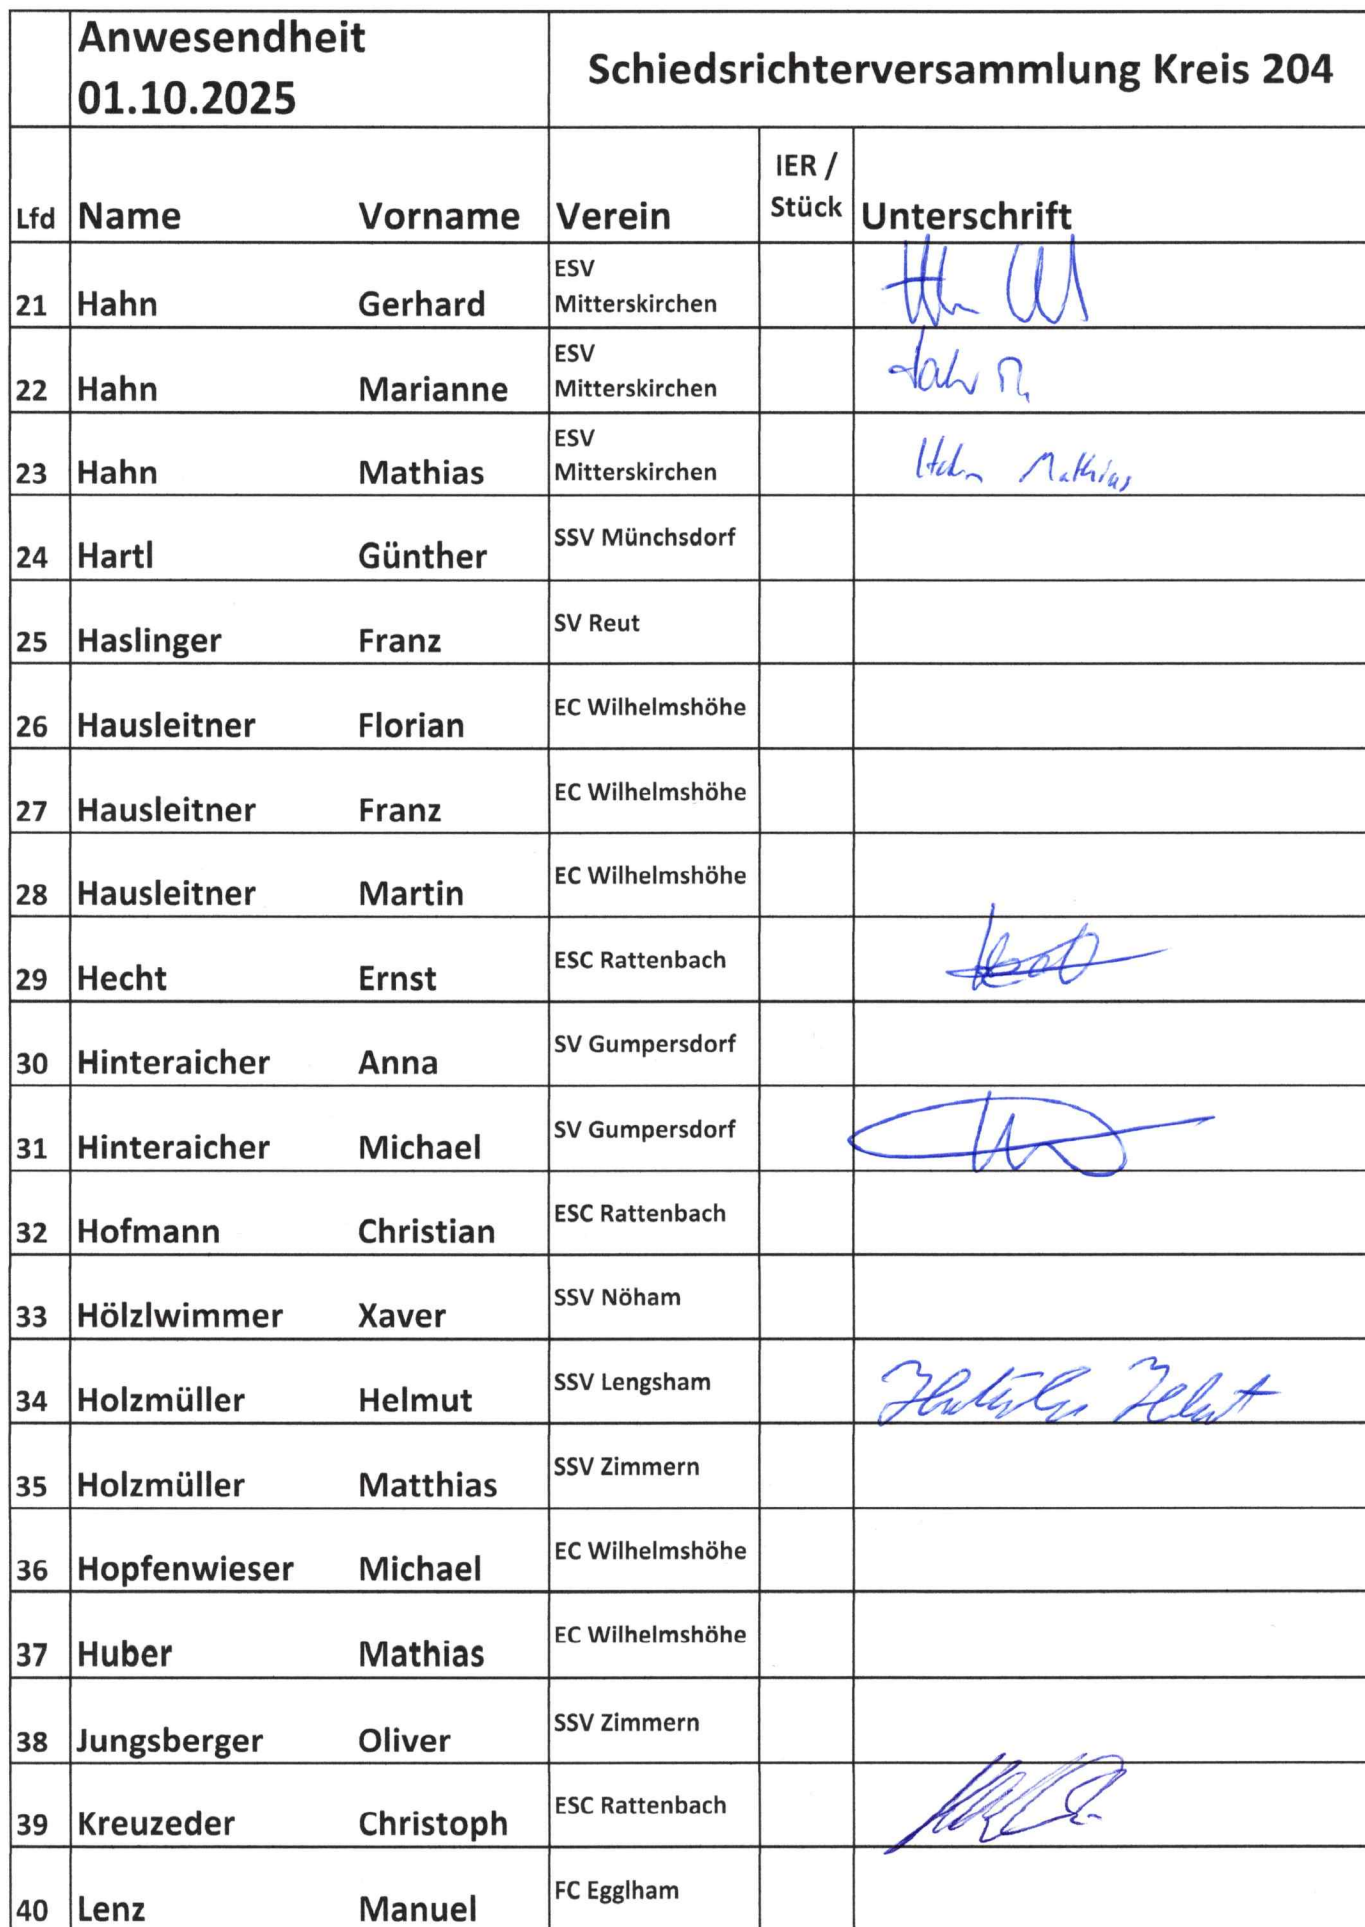 Anwesendheit
01.10.2025
Schiedsrichterversammlung Kreis 204
Lfd Name Vorname Verein IER / Stück Unterschrift
21 Hahn Gerhard ESV Mitterskirchen
22 Hahn Marianne ESV Mitterskirchen
23 Hahn Mathias ESV Mitterskirchen Hahn Mathias
24 Hartl Günther SSV Münchsdorf
25 Haslinger Franz SV Reut
26 Hausleitner Florian EC Wilhelmshöhe
27 Hausleitner Franz EC Wilhelmshöhe
28 Hausleitner Martin EC Wilhelmshöhe
29 Hecht Ernst ESC Rattenbach
30 Hinteraicher Anna SV Gumpersdorf
31 Hinteraicher Michael SV Gumpersdorf
32 Hofmann Christian ESC Rattenbach
33 Hölzlwimmer Xaver SSV Nöham
34 Holzmüller Helmut SSV Lengsham
35 Holzmüller Matthias SSV Zimmern
36 Hopfenwieser Michael EC Wilhelmshöhe
37 Huber Mathias EC Wilhelmshöhe
38 Jungsberger Oliver SSV Zimmern
39 Kreuzeder Christoph ESC Rattenbach
40 Lenz Manuel FC Egglham